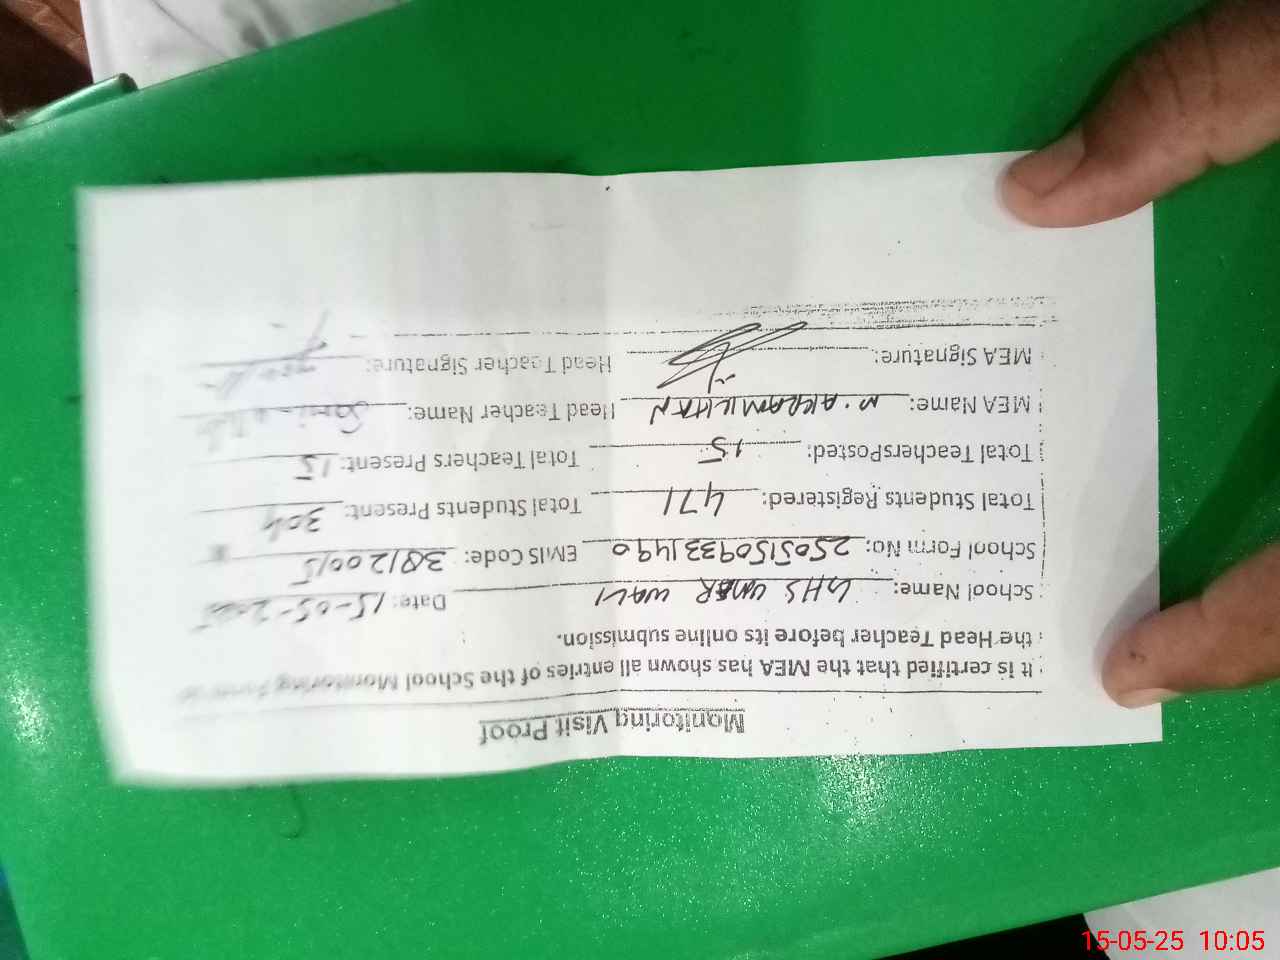 Monitoring Visit Proof
It is certified that the MEA has shown all entries of the School Monitoring
the Head Teacher before its online submission.
School Name: GHS UMAR WALI Date: 15-05-2025
School Form No: 250515093331490 EMIS Code: 38120015
Total Students Registered: 471 Total Students Present: 304
Total TeachersPosted: 15 Total Teachers Present: 15
MEA Name: M. AKRAM KHAN Head Teacher Name: Sami
MEA Signature: Head Teacher Signature:
15-05-25 10:05